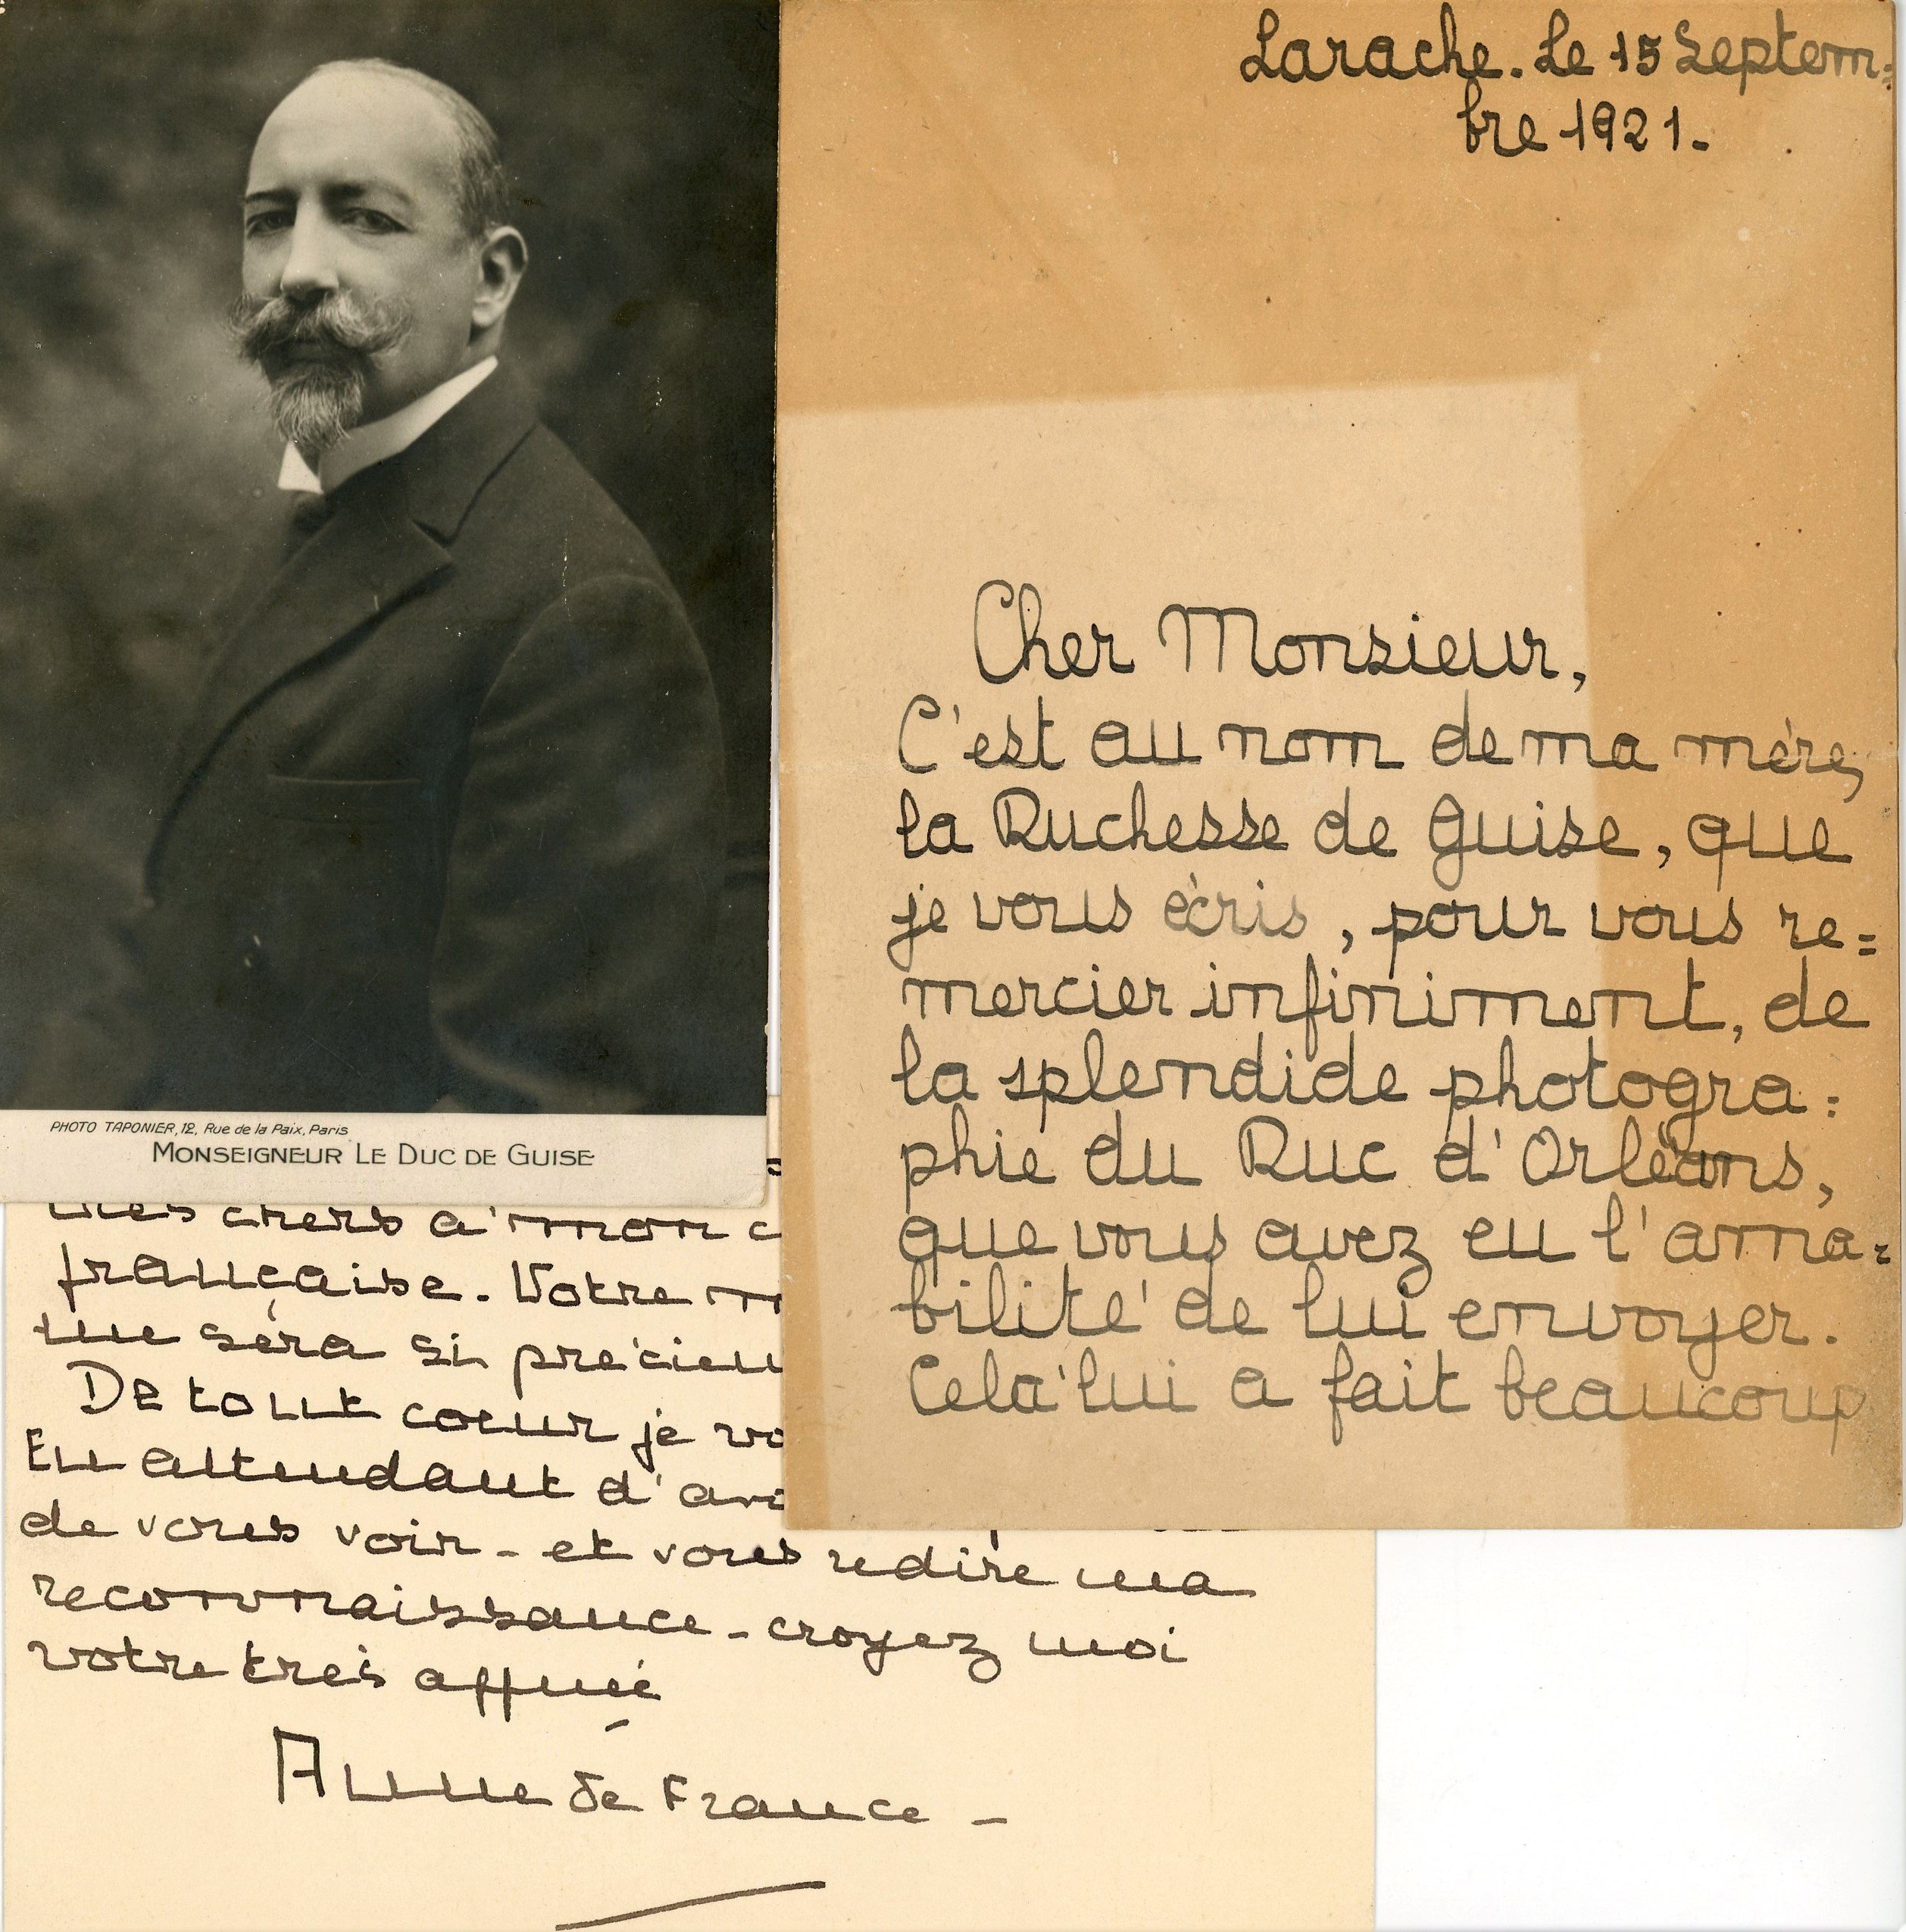 Larache. Le 15 Septem=
bre 1921.
Cher Monsieur,
C'est au nom de ma mère,
la Duchesse de Guise, que
je vous écris, pour vous re=
mercier infiniment, de
la splendide photogra=
phie du Duc d'Orléans,
que vous avez eu l'ama=
bilité de lui envoyer.
Cela lui a fait beaucoup
PHOTO TAPONIER, 12, Rue de la Paix, Paris
MONSEIGNEUR LE DUC DE GUISE
chers à mon
française. Votre
me sera si précieu
De tout coeur je vo
En attendant d'avo
de vous voir - et vous redire ma
reconnaissance - croyez moi
votre très affnée
Anne de France -